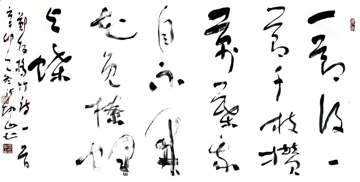 一節復一
節千枝攢
萬葉我
自不開
花免撩蜂
与蝶
鄭板橋竹詩一首
辛卯之冬